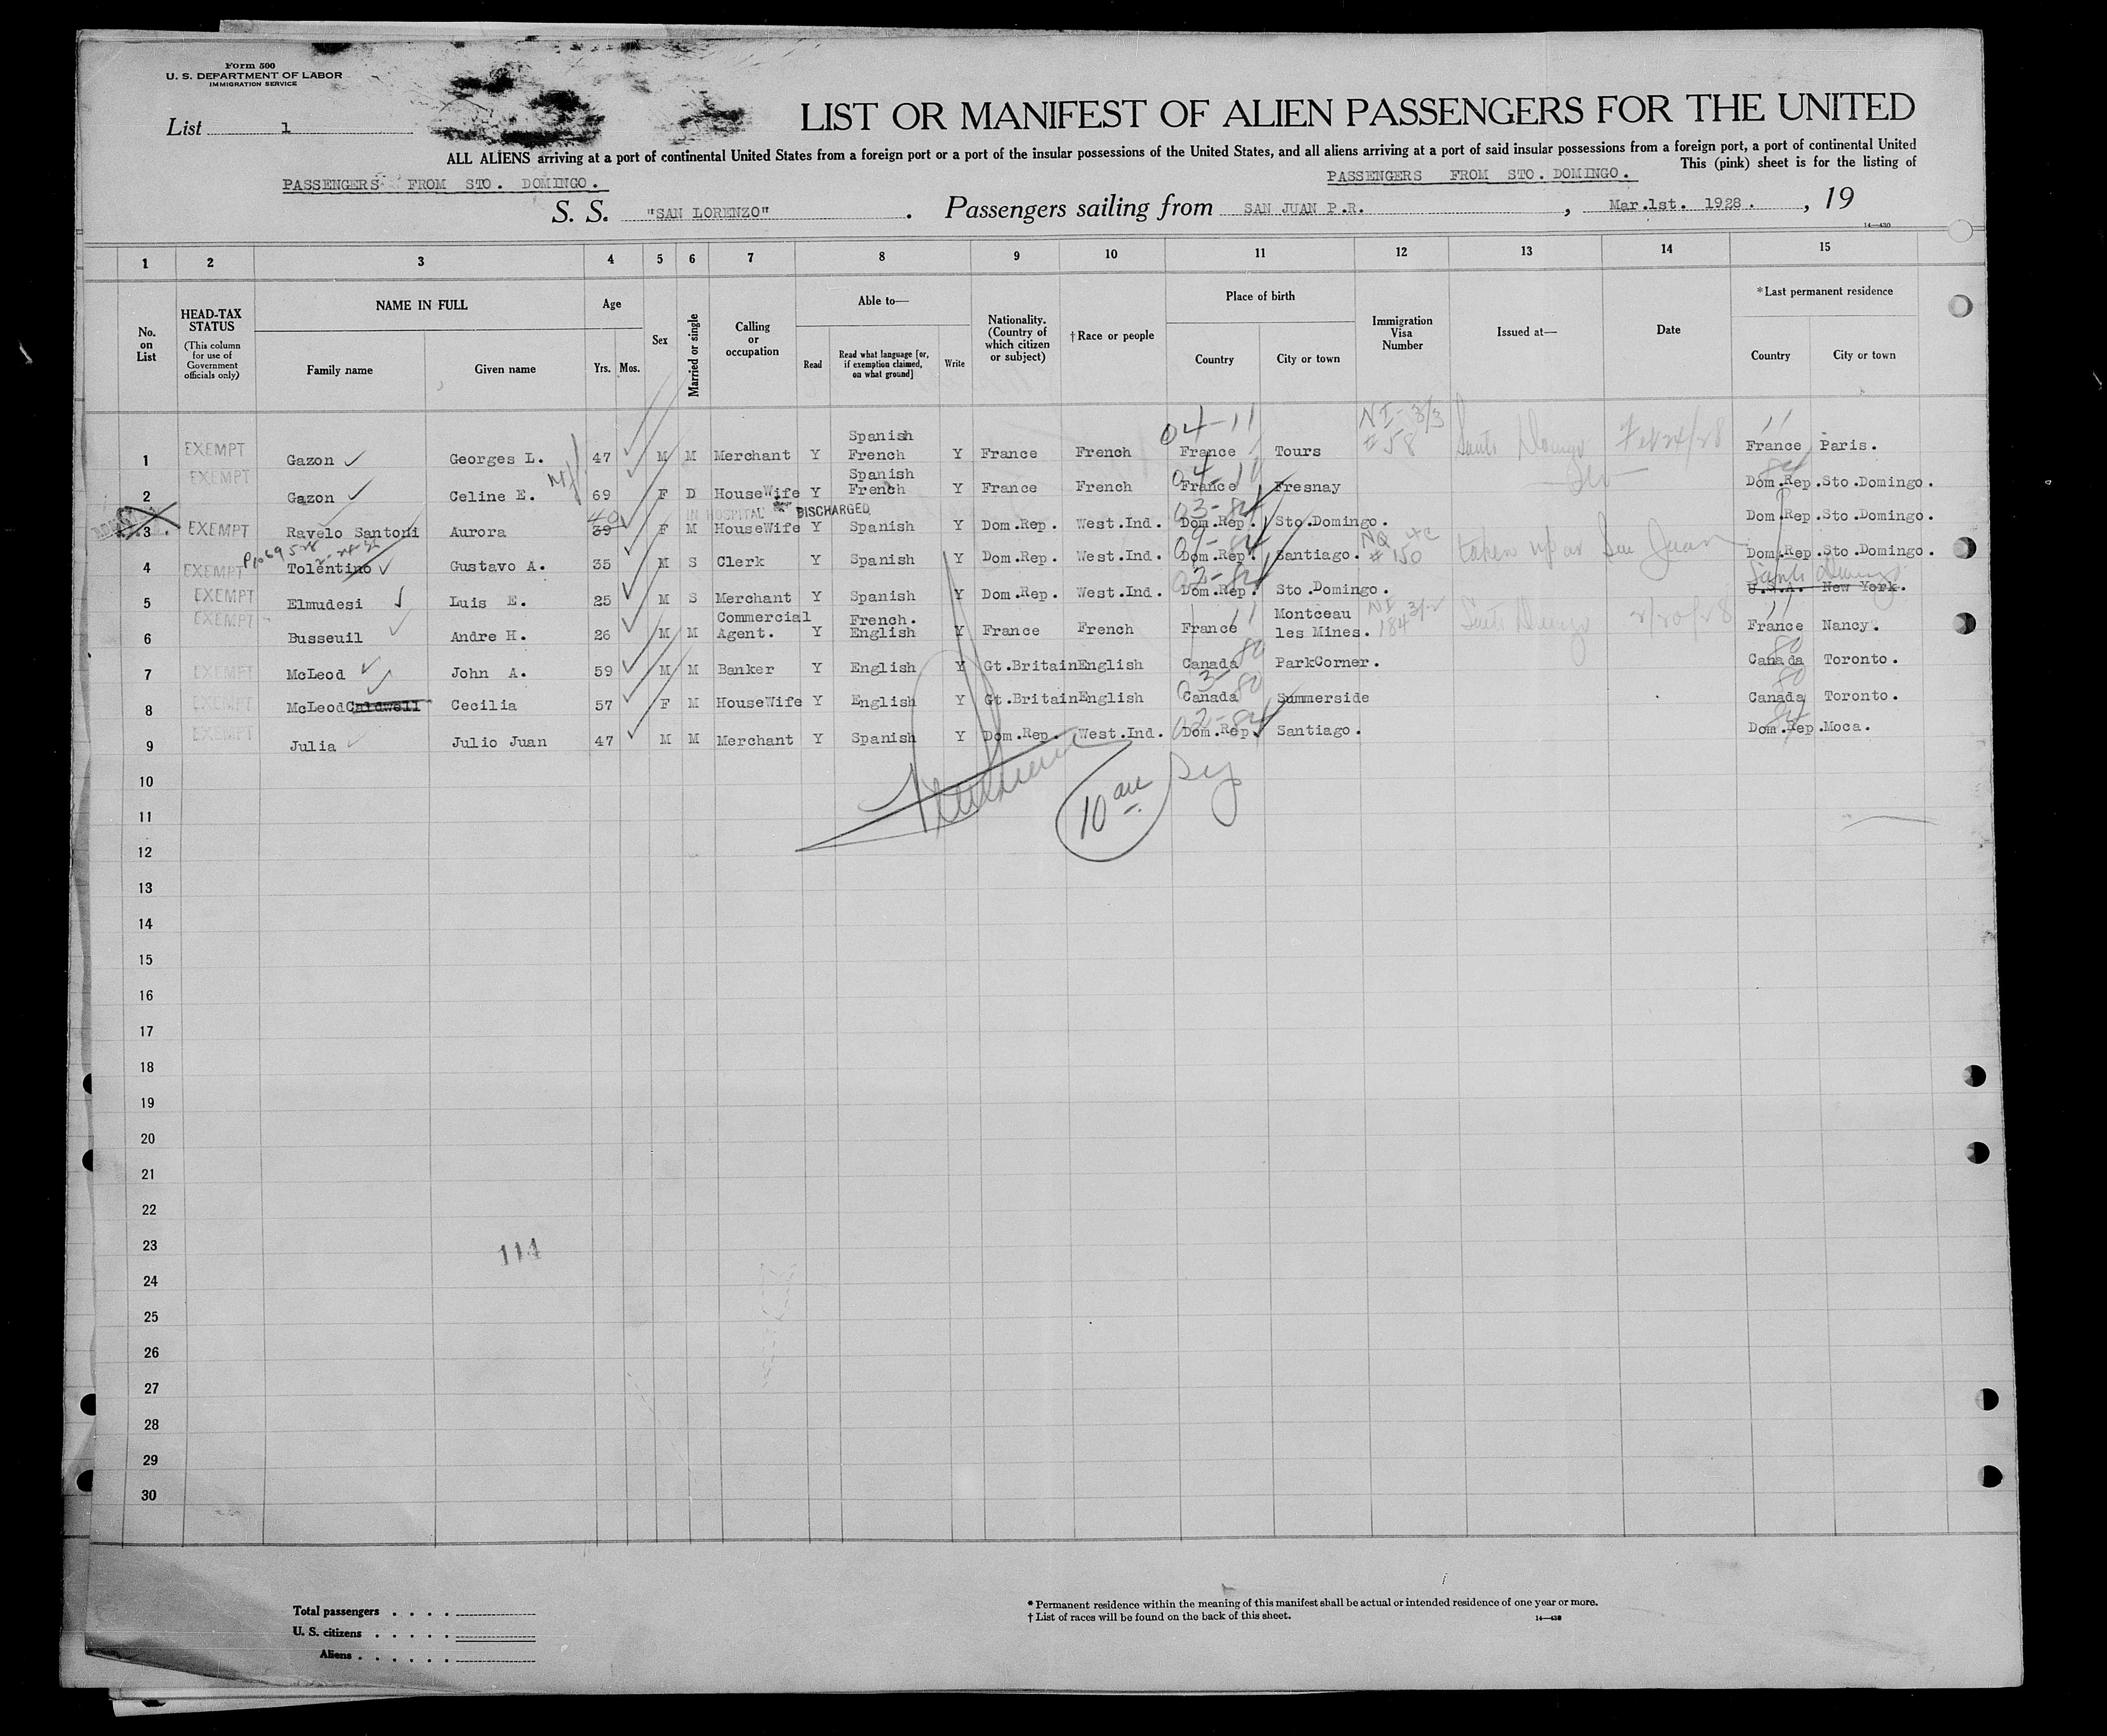 Form 500
U. S. DEPARTMENT OF LABOR
IMMIGRATION SERVICE
List 1
LIST OR MANIFEST OF ALIEN PASSENGERS FOR THE UNITED
ALL ALIENS arriving at a port of continental United States from a foreign port or a port of the insular possessions of the United States, and all aliens arriving at a port of said insular possessions from a foreign port, a port of continental United
This (pink) sheet is for the listing of
PASSENGERS FROM STO. DOMINGO. PASSENGERS FROM STO. DOMINGO.
S. S. "SAN LORENZO" . Passengers sailing from SAN JUAN P.R. , Mar.1st. 1928. , 19
14—430
1 2 3 4 5 6 7 8 9 10 11 12 13 14 15
No. on List
HEAD-TAX STATUS (This column for use of Government officials only)
NAME IN FULL
Family name Given name
Age
Yrs. Mos.
Sex
Married or single
Calling or occupation
Able to—
Read
Read what language [or, if exemption claimed, on what ground]
Write
Nationality. (Country of which citizen or subject)
† Race or people
Place of birth
Country City or town
Immigration Visa Number
Issued at—
Date
* Last permanent residence
Country City or town
04-11 NI-3/3 11
1 EXEMPT Gazon Georges L. 47 M M Merchant Y Spanish French Y France French France Tours #58 Santo Domingo Feb 24/28 France Paris.
04-11 84
2 EXEMPT Gazon Celine E. 69 F D HouseWife Y Spanish French Y France French France Fresnay Dom.Rep. Sto.Domingo.
40 IN HOSPITAL DISCHARGED 03-84
3 EXEMPT Ravelo Santoni Aurora 39 F M HouseWife Y Spanish Y Dom.Rep. West.Ind. Dom.Rep. Sto.Domingo. Dom.Rep. Sto.Domingo.
09-84 NQ 4c
4 EXEMPT Tolentino Gustavo A. 35 M S Clerk Y Spanish Y Dom.Rep. West.Ind. Dom.Rep. Santiago. #150 taken up at San Juan Dom.Rep. Sto.Domingo.
02-84 Santo Domingo
5 EXEMPT Elmudesi Luis E. 25 M S Merchant Y Spanish Y Dom.Rep. West.Ind. Dom.Rep. Sto.Domingo. U.S.A. New York.
11 NI 3/2 11
6 EXEMPT Busseuil Andre H. 26 M M Commercial Agent. Y French. English Y France French France Montceau les Mines. 184 Santo Domingo 2/20/28 France Nancy.
80 80
7 EXEMPT McLeod John A. 59 M M Banker Y English Y Gt.Britain English Canada ParkCorner. Canada Toronto.
03-80 80
8 EXEMPT McLeod Caldwell Cecilia 57 F M HouseWife Y English Y Gt.Britain English Canada Summerside Canada Toronto.
02-84 84
9 EXEMPT Julia Julio Juan 47 M M Merchant Y Spanish Y Dom.Rep. West.Ind. Dom.Rep. Santiago. Dom.Rep. Moca.
10
11
12
13
14
15
16
17
18
19
20
21
22
23
114
24
25
26
27
28
29
30
Total passengers . . . .
U. S. citizens . . . . .
Aliens . . . . . .
* Permanent residence within the meaning of this manifest shall be actual or intended residence of one year or more.
† List of races will be found on the back of this sheet.
14—430